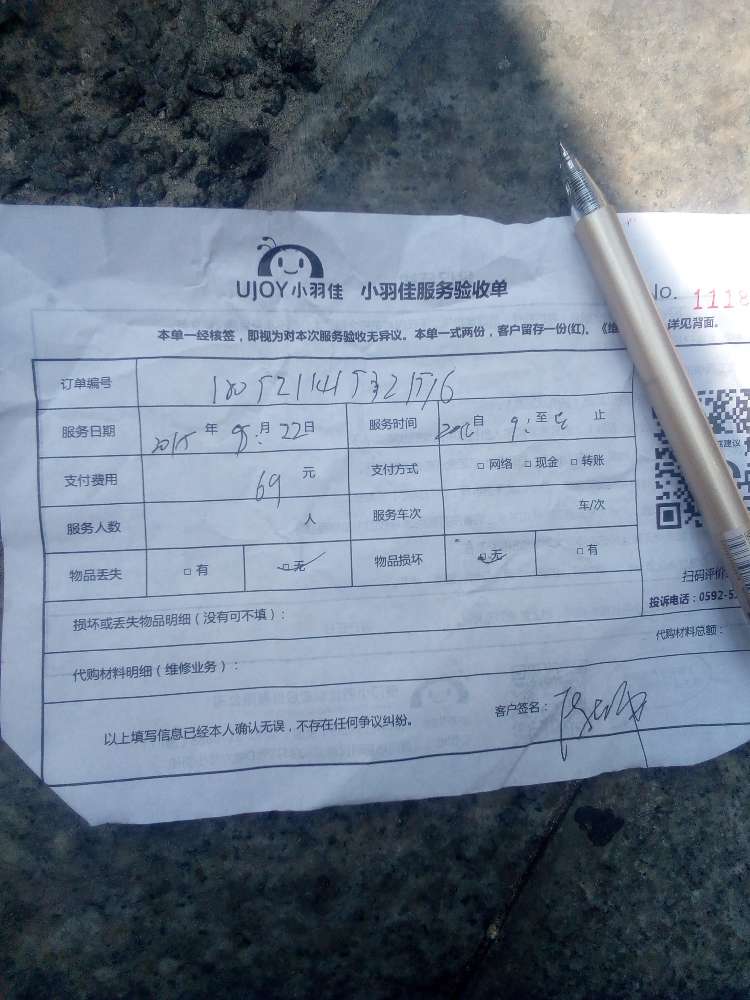 UJOY小羽佳 小羽佳服务验收单
No. 1118
本单一经核签，即视为对本次服务验收无异议。本单一式两份，客户留存一份(红)。《维 详见背面。
订单编号
服务日期 年 月 22日 服务时间 自 9: 至 止
支付费用 69 元 支付方式 □ 网络 □ 现金 □ 转账
服务人数 人 服务车次 车/次
物品丢失 □ 有 □ 无 物品损坏 □ 无 □ 有
建议
扫码评价
投诉电话：0592-5
损坏或丢失物品明细（没有可不填）：
代购材料总额：
代购材料明细（维修业务）：
以上填写信息已经本人确认无误，不存在任何争议纠纷。 客户签名：